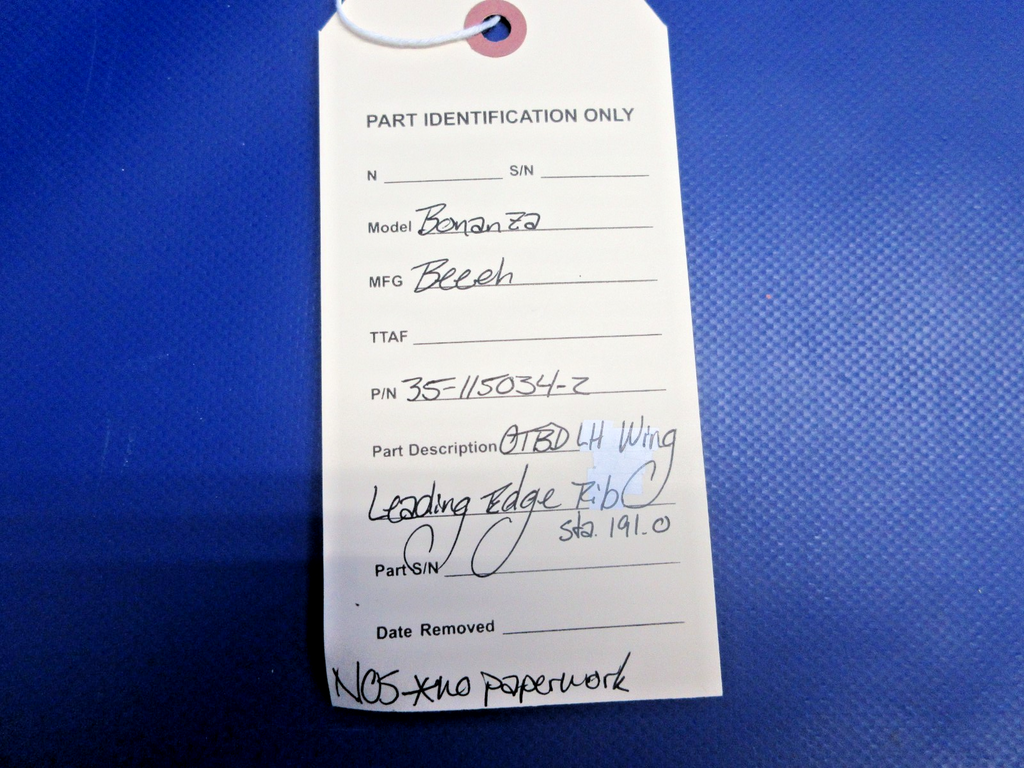 PART IDENTIFICATION ONLY
N S/N
Model Bonanza
MFG Beech
TTAF
P/N 35-115034-2
Part Description OTBD LH Wing
Leading Edge Rib
Sta. 191.0
Part S/N
Date Removed
NOS *no paperwork